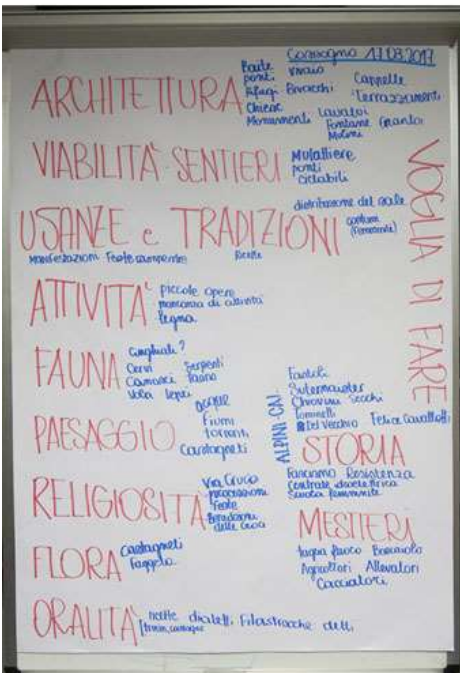 17.03.2017
ARCHITETTURA
Baite vivaio
ponti
Rifugi Bivacchi Cappelle
Terrazzamenti
Chiese
Monumenti Lavatoi
Fontane Granito
Mulini
VIABILITÀ SENTIERI
Mulattiere
ponti
ciclabili
USANZE e TRADIZIONI
distribuzione del sale
costumi
(Femminile)
Manifestazioni Feste campestri Ricette
ATTIVITÀ
piccole opere
mancanza di attività
legna
FAUNA
Cinghiali?
Cervi Serpenti
Camosci Tasso
Volpi Lepri
PAESAGGIO
acque
Fiumi
torrenti
Castagneti
RELIGIOSITÀ
Via Crucis
processioni
Feste
Benedizioni
delle
FLORA
Castagneti
Faggeta
ORALITÀ
notte dialetti Filastrocche detti
VOGLIA DI FARE
ALPINI-CAI
Fantoli
Sutermeister
Chiovini Secchi
Tominelli
Del Vecchio Felice Cavallotti
STORIA
Fascismo Resistenza
Centrale idroelettrica
Scuola femminile
MESTIERI
taglia fuoco Boscaiolo
Agricoltori Allevatori
Cacciatori